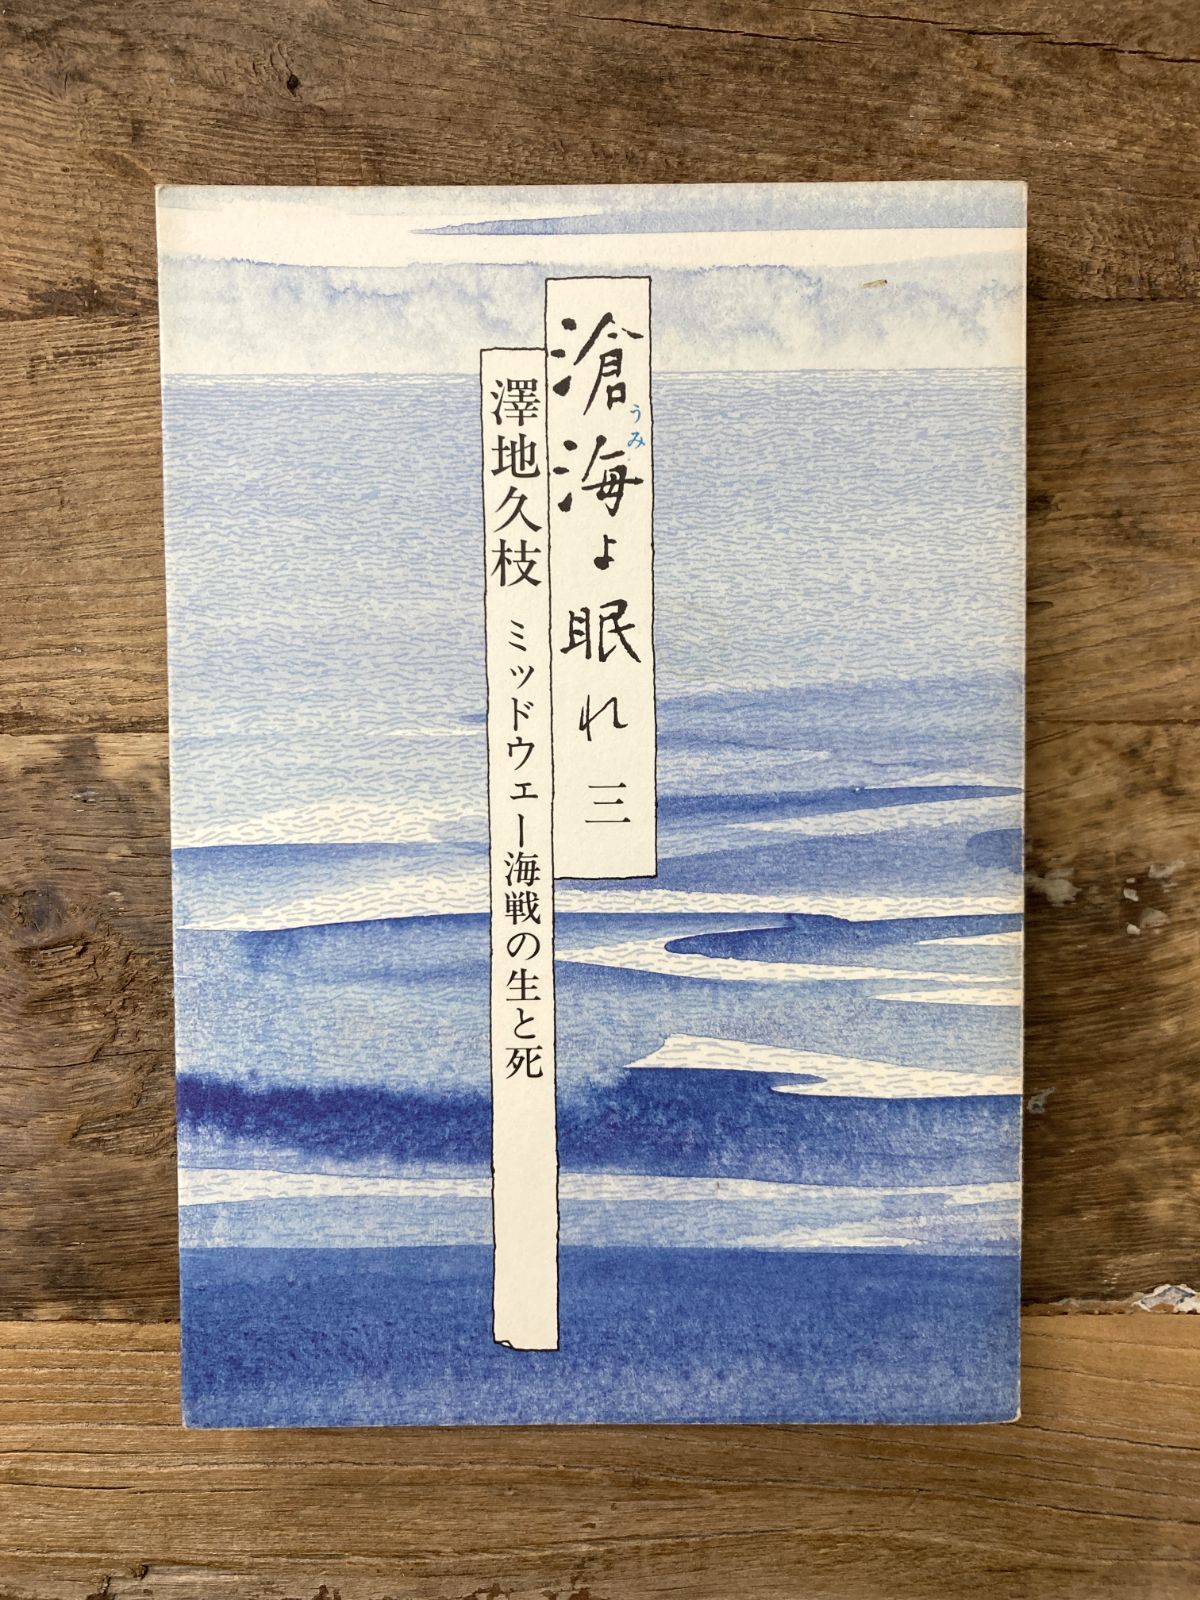 滄海よ眠れ 三
うみ
澤地久枝 ミッドウェー海戦の生と死